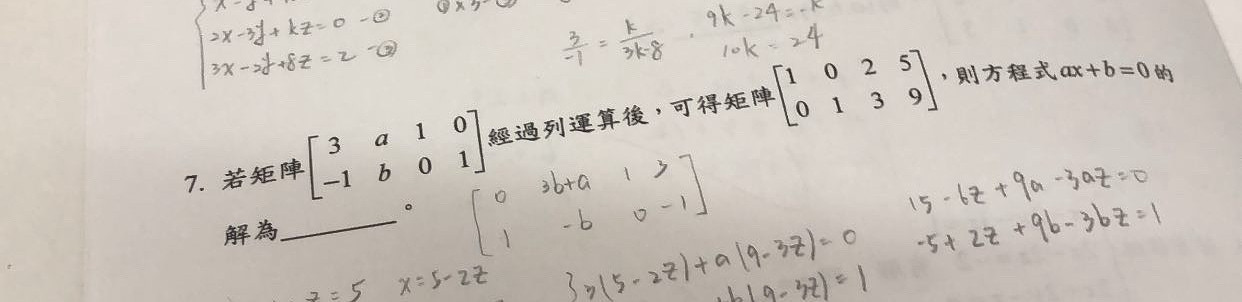 2x-3y+kz=0 -②
3x-2y+8z=2 -③
3/-1 = k/3k-8 . 9k-24=-k
10k=24
7. 若矩陣[3 a 1 0
-1 b 0 1]經過列運算後，可得矩陣[1 0 2 5
0 1 3 9]，則方程式ax+b=0的
解為________。
[0 3b+a 1 3
1 -b 0 -1]
15-6z+9a-3az=0
-5+2z+9b-3bz=1
z=5 x=5-2z
3(5-2z)+a(9-3z)=0
b(9-3z)=1